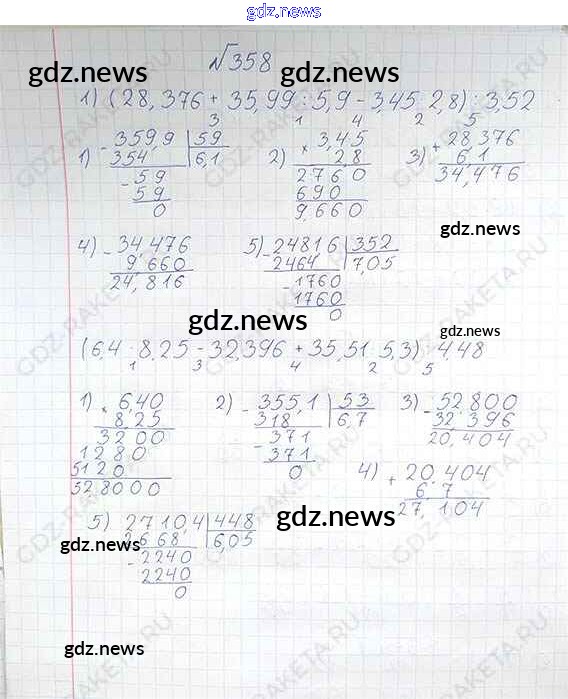 gdz.news
№358
gdz.news gdz.news
1) (28,376 + 35,99 : 5,9 - 3,45 · 2,8) : 3,52
3 1 4 2 5
1) - 359,9 | 59
354 | 6,1
- 59
59
0
2) × 3,45
2,8
2760
690
9,660
3) + 28,376
6,1
34,476
gdz.news
4) - 34,476
9,660
24,816
5) - 24816 | 352
2464 | 7,05
- 1760
1760
0
gdz.news
gdz.news
(6,4 · 8,25 - 32,396 + 35,51 : 5,3) : 4,48
1 3 4 2 5
1) × 6,40
8,25
3200
1280
5120
52,8000
2) - 355,1 | 53
318 | 6,7
- 371
371
0
3) - 52,800
32,396
20,404
4) + 20,404
6,7
27,104
gdz.news
5) 2710,4 | 448
2668 | 6,05
- 2240
2240
0
gdz.news
gdz.news
gdz.news
GDZ-RAKETA.RU